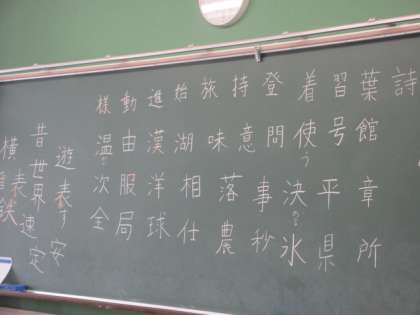 詩
葉館章所
習号平県
着使う決氷
登問事秒
持意落農
旅味相仕
始湖洋球
進漢服局
動由次全
様温
遊表す安
昔世界速定
横表鉄